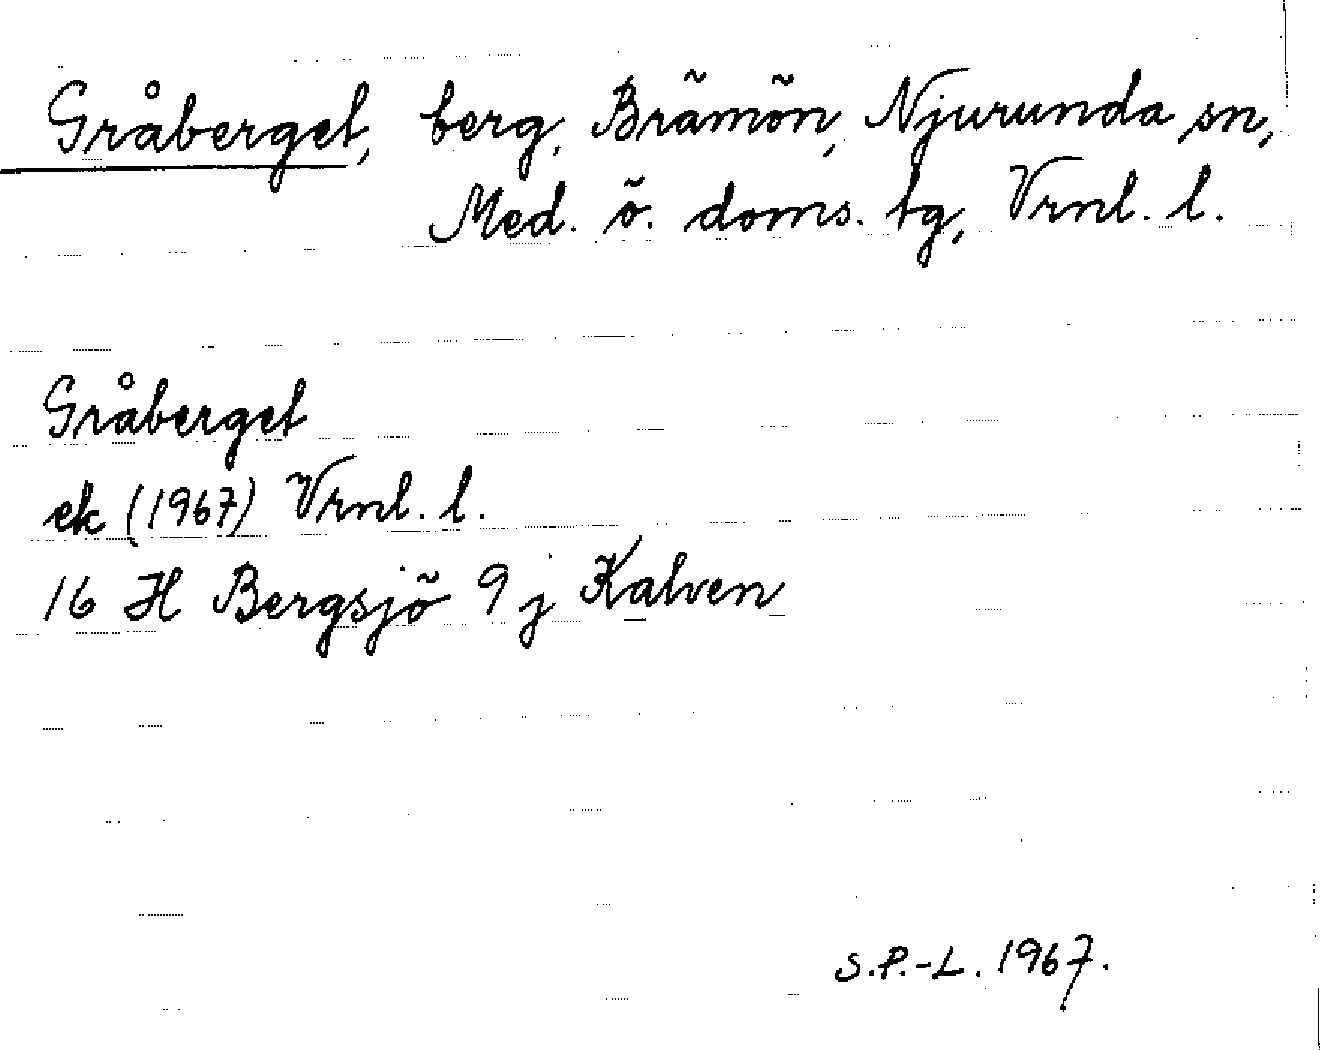 Gråberget, berg, Brämön, Njurunda sn,
Med. ö. doms. tg, Vrnl. l.
Gråberget
ek (1967) Vrnl. l.
16 H Bergsjö 9 j Kalven
S.P.-L. 1967.